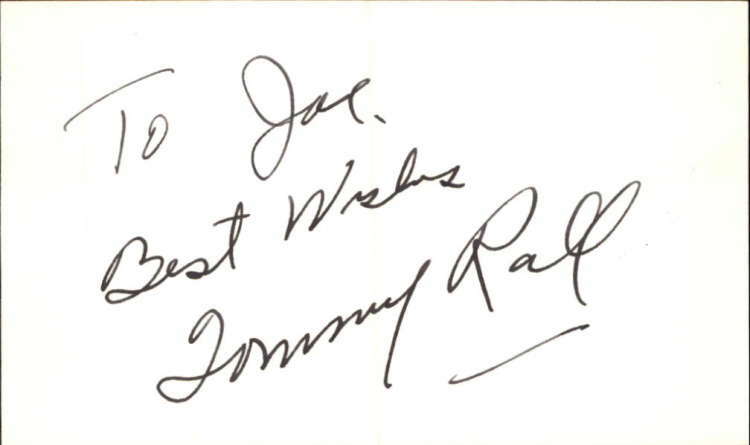 To Joe.
Best Wishes
Tommy Rall